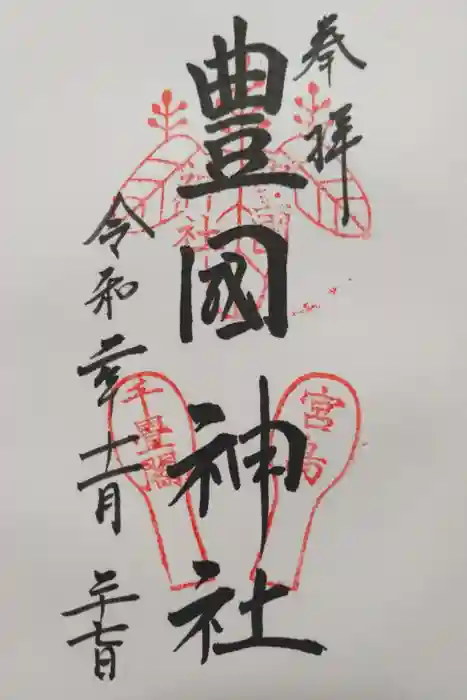 奉拝
豊國神社
宮島
千畳閣
令和二年十一月二十七日